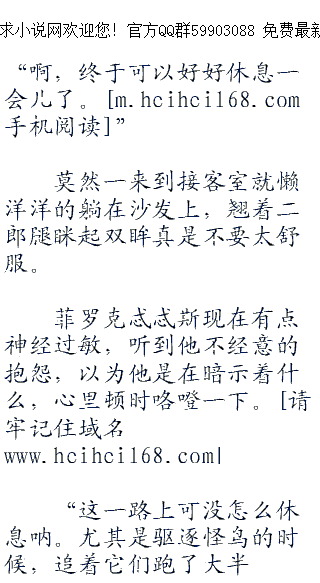 求小说网欢迎您！官方QQ群59903088 免费最新
“啊，终于可以好好休息一
会儿了。[m.hcihcil68.com
手机阅读]”
莫然一来到接客室就懒
洋洋的躺在沙发上，翘着二
郎腿眯起双眸真是不要太舒
服。
菲罗克忒忒斯现在有点
神经过敏，听到他不经意的
抱怨，以为他是在暗示着什
么，心里顿时咯噔一下。[请
牢记住域名
www.hcihcil68.com|
“这一路上可没怎么休
息呐。尤其是驱逐怪鸟的时
候，追着它们跑了大半